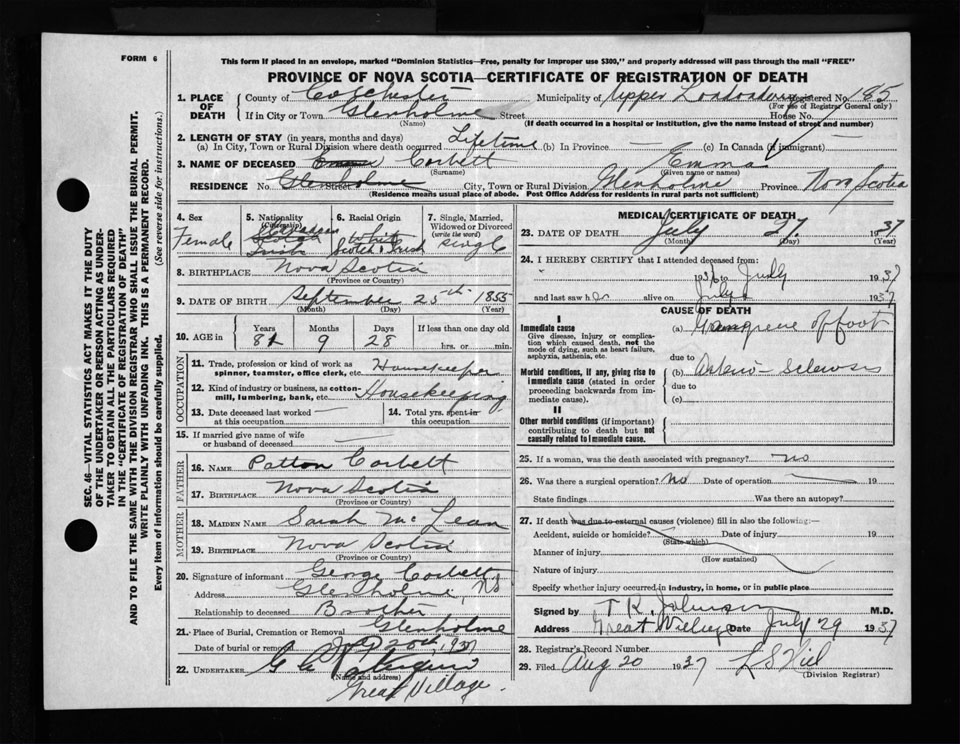 FORM 6
This form if placed in an envelope, marked "Dominion Statistics—Free, penalty for improper use $300," and properly addressed will pass through the mail "FREE"
PROVINCE OF NOVA SCOTIA—CERTIFICATE OF REGISTRATION OF DEATH
SEC. 46—VITAL STATISTICS ACT MAKES IT THE DUTY
OF THE UNDERTAKER OR PERSON ACTING AS UNDER-
TAKER TO OBTAIN ALL THE PARTICULARS REQUIRED
IN THE "CERTIFICATE OF REGISTRATION OF DEATH"
AND TO FILE THE SAME WITH THE DIVISION REGISTRAR WHO SHALL ISSUE THE BURIAL PERMIT.
WRITE PLAINLY WITH UNFADING INK. THIS IS A PERMANENT RECORD.
Every item of information should be carefully supplied. (See reverse side for instructions.)
1. PLACE OF DEATH County of Colchester Municipality of Upper Registered No. 185
(For use of Registrar General only)
If in City or Town Glenholme Street House No.
(Name) (If death occurred in a hospital or institution, give the name instead of street and number)
2. LENGTH OF STAY (in years, months and days)
(a) In City, Town or Rural Division where death occurred Lifetime (b) In Province — (c) In Canada (if immigrant)
3. NAME OF DECEASED Emma Corbett Emma
(Surname) (Given name or names)
RESIDENCE No. Glenholme Street City, Town or Rural Division Glenholme Province Nova Scotia
(Residence means usual place of abode. Post Office Address for residents in rural parts not sufficient)
4. Sex 5. Nationality (Citizenship) 6. Racial Origin 7. Single, Married, Widowed or Divorced (write the word)
Female Canadian Scotch Irish White Scotch & Irish single
8. BIRTHPLACE Nova Scotia
(Province or Country)
9. DATE OF BIRTH September 25th 1855
(Month) (Day) (Year)
10. AGE in Years Months Days If less than one day old
81 9 28 hrs. or min.
OCCUPATION
11. Trade, profession or kind of work as spinner, teamster, office clerk, etc. Housekeeper
12. Kind of industry or business, as cotton-mill, lumbering, bank, etc. Housekeeping
13. Date deceased last worked at this occupation — 14. Total yrs. spent in this occupation
15. If married give name of wife or husband of deceased —
FATHER
16. NAME Patton Corbett
17. BIRTHPLACE Nova Scotia
(Province or Country)
MOTHER
18. MAIDEN NAME Sarah McLean
19. BIRTHPLACE Nova Scotia
(Province or Country)
20. Signature of informant George Corbett
Address Glenholme, NS
Relationship to deceased Brother
21. Place of Burial, Cremation or Removal Glenholme
Date of burial or removal 1937
22. UNDERTAKER G C
(Name and address)
Great Village.
MEDICAL CERTIFICATE OF DEATH
23. DATE OF DEATH July 27. 1937
(Month) (Day) (Year)
24. I HEREBY CERTIFY that I attended deceased from:
1936 July 1937
and last saw her alive on July 1937
CAUSE OF DEATH
I
Immediate cause (a) Gangrene of foot
Give disease, injury or complication which caused death, not the mode of dying, such as heart failure, asphyxia, asthenia, etc.
due to
Morbid conditions, if any, giving rise to immediate cause (stated in order proceeding backwards from immediate cause). (b) Arterio-Sclerosis
due to
(c)
II
Other morbid conditions (if important) contributing to death but not causally related to immediate cause.
25. If a woman, was the death associated with pregnancy? no
26. Was there a surgical operation? No Date of operation — 19
State findings Was there an autopsy?
27. If death was due to external causes (violence) fill in also the following:—
Accident, suicide or homicide? Date of injury 19
(State which)
Manner of injury
(How sustained)
Nature of injury
Specify whether injury occurred in industry, in home, or in public place
Signed by T. R. Johnson M.D.
Address Great Village Date July 29 1937
28. Registrar's Record Number
29. Filed Aug 20 1937 L S
(Division Registrar)